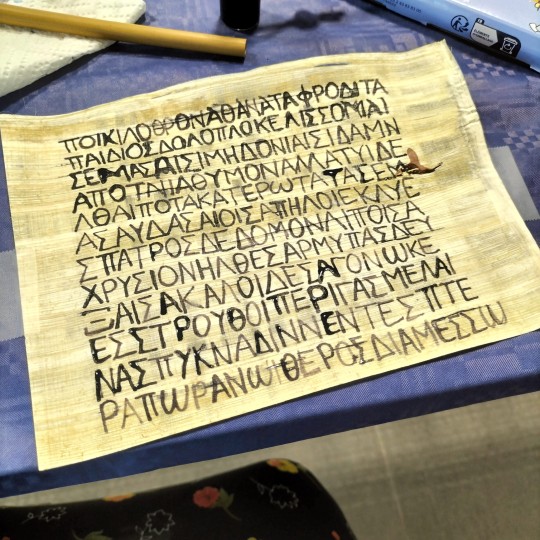 ΠΟΙΚΙΛΟΘΡΟΝΑΘΑΝΑΤΑΦΡΟΔΙΤΑ
ΠΑΙΔΙΟΣΔΟΛΟΠΛΟΚΕΛΙΣΣΟΜΑΙ
ΣΕΜΑΣΑΙΣΙΜΗΔΟΝΙΑΙΣΙΔΑΜΝ
ΑΠΟΤΑΠΑΘΥΜΟΝΑΛΛΑΤΥΙΔΕ
ΛΘΑΙΠΟΤΑΚΑΤΕΡΩΤΑΤΑΣΕΜ
ΑΣΑΥΔΑΣΑΙΟΙΣΑΠΗΛΟΙΕΚΛΥΕ
ΣΠΑΤΡΟΣΔΕΔΟΜΟΝΛΙΠΟΙΣΑ
ΧΡΥΣΙΟΝΗΛΘΕΣΑΡΜΥΠΑΣΔΕΥ
ΞΑΙΣΑΚΑΛΟΙΔΕΣΑΓΟΝΩΚΕ
ΕΣΣΤΡΟΥΘΟΙΠΕΡΙΓΑΣΜΕΛΑΙ
ΝΑΣΠΥΚΝΑΔΙΝΝΕΝΤΕΣΠΤΕ
ΡΑΠΩΡΑΝΩΘΕΡΟΣΔΙΑΜΕΣΣΩ